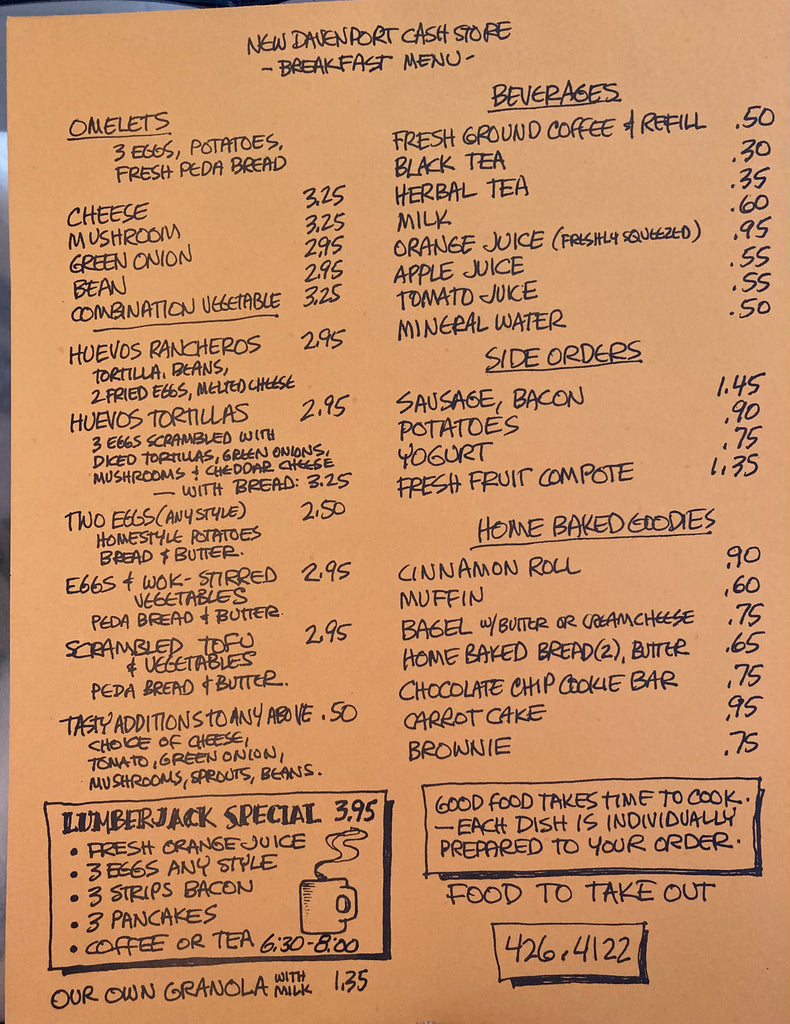 NEW DAVENPORT CASH STORE
- BREAKFAST MENU -
OMELETS
3 EGGS, POTATOES,
FRESH PEDA BREAD
CHEESE 3.25
MUSHROOM 3.25
GREEN ONION 2.95
BEAN 2.95
COMBINATION VEGETABLE 3.25
HUEVOS RANCHEROS 2.95
TORTILLA, BEANS,
2 FRIED EGGS, MELTED CHEESE
HUEVOS TORTILLAS 2.95
3 EGGS SCRAMBLED WITH
DICED TORTILLAS, GREEN ONIONS,
MUSHROOMS & CHEDDAR CHEESE
— WITH BREAD: 3.25
TWO EGGS (ANY STYLE) 2.50
HOMESTYLE POTATOES
BREAD & BUTTER.
EGGS & WOK-STIRRED 2.95
VEGETABLES
PEDA BREAD & BUTTER.
SCRAMBLED TOFU 2.95
& VEGETABLES
PEDA BREAD & BUTTER.
TASTY ADDITIONS TO ANY ABOVE .50
CHOICE OF CHEESE,
TOMATO, GREEN ONION,
MUSHROOMS, SPROUTS, BEANS.
LUMBERJACK SPECIAL 3.95
• FRESH ORANGE JUICE
• 3 EGGS ANY STYLE
• 3 STRIPS BACON
• 3 PANCAKES
• COFFEE OR TEA 6:30-8:00
OUR OWN GRANOLA WITH MILK 1.35
BEVERAGES
FRESH GROUND COFFEE & REFILL .50
BLACK TEA .30
HERBAL TEA .35
MILK .60
ORANGE JUICE (FRESHLY SQUEEZED) .95
APPLE JUICE .55
TOMATO JUICE .55
MINERAL WATER .50
SIDE ORDERS
SAUSAGE, BACON 1.45
POTATOES .90
YOGURT .75
FRESH FRUIT COMPOTE 1.35
HOME BAKED GOODIES
CINNAMON ROLL .90
MUFFIN .60
BAGEL W/BUTTER OR CREAMCHEESE .75
HOME BAKED BREAD (2), BUTTER .65
CHOCOLATE CHIP COOKIE BAR .75
CARROT CAKE .95
BROWNIE .75
GOOD FOOD TAKES TIME TO COOK.
— EACH DISH IS INDIVIDUALLY
PREPARED TO YOUR ORDER.
FOOD TO TAKE OUT
426.4122